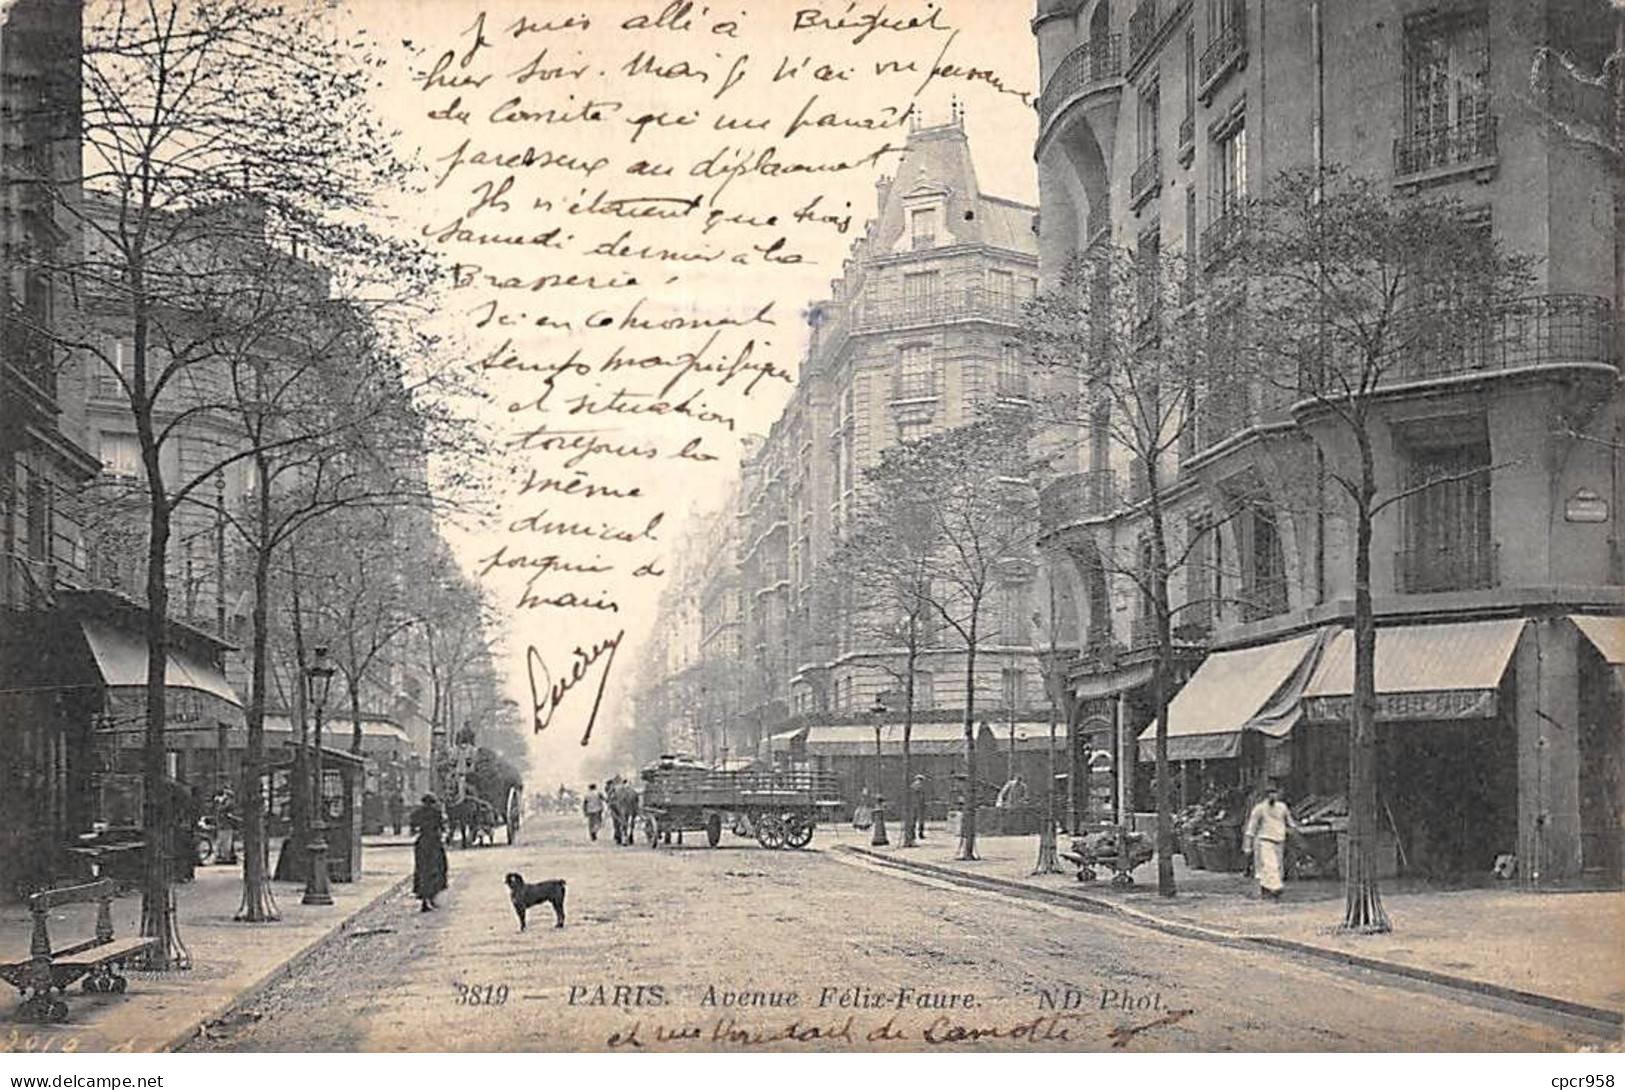 Je suis allé à Bréguet
hier soir. Mais je n'ai vu personne
du Comité qui me parait
paresseux au déplacement
Ils n'étaient que trois
samedi dernier à la
Brasserie.
Ici en ce moment
temps magnifique
et situation
toujours la
même
Amical
main
3819 — PARIS. Avenue Félix-Faure. ND Phot.
et rue de Lamotte
FELIX-FAURE
cpcr958